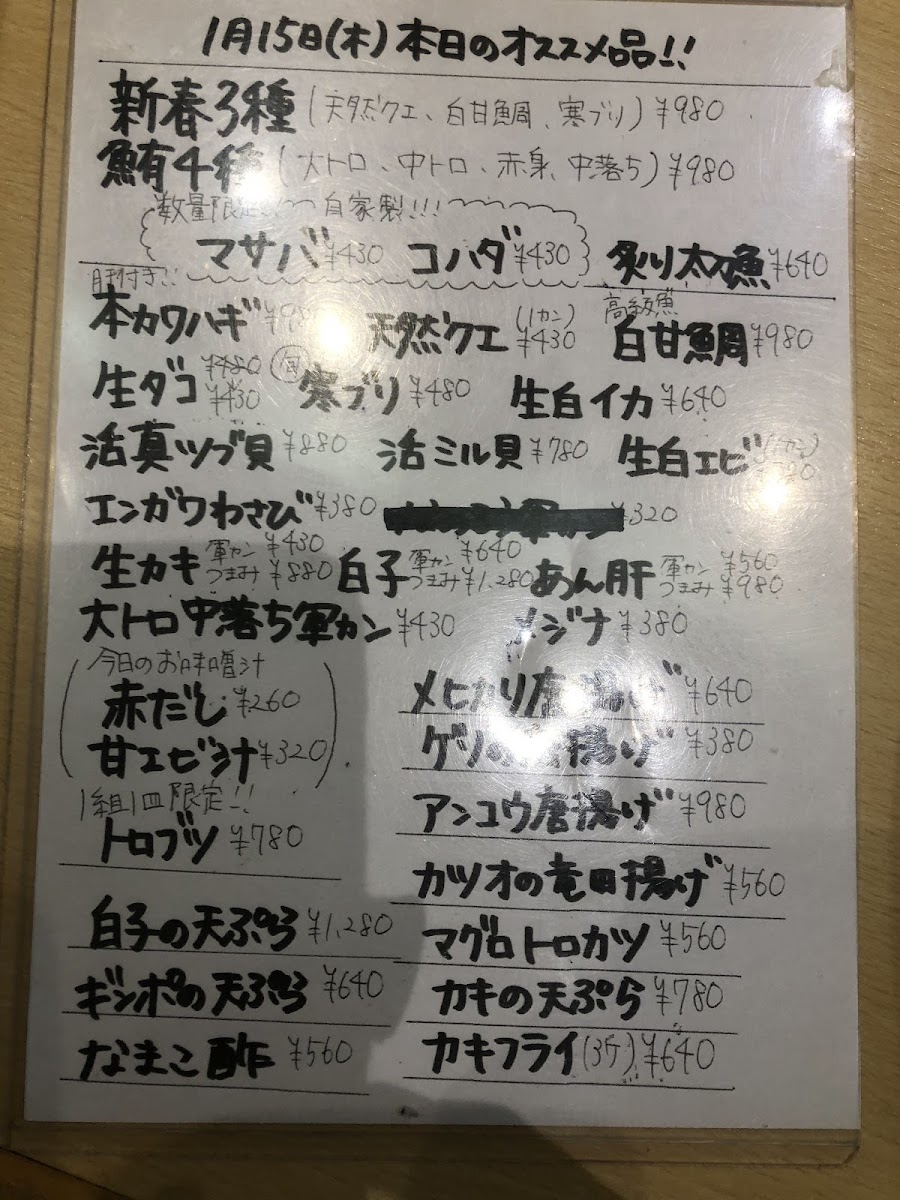 1月15日(木)本日のオススメ品!!
新春3種(天然クエ、白甘鯛、寒ブリ)¥980
鮪4種(大トロ、中トロ、赤身、中落ち)¥980
数量限定 自家製!!!
マサバ¥430 コハダ¥430 炙り太刀魚¥640
肝付き!! 高級魚
本カワハギ 天然クエ(1カン)¥430 白甘鯛¥980
生ダコ ¥480 ¥430 寒ブリ¥480 生白イカ¥640
活真ツブ貝¥880 活ミル貝¥780 生白エビ(1カン)
エンガワわさび¥380 ¥320
生カキ 軍カン¥430 つまみ¥880 白子 軍カン¥640 つまみ¥1,280 あん肝 軍カン¥560 つまみ¥980
大トロ中落ち軍カン¥430 メジナ¥380
今日のお味噌汁
赤だし¥260 メヒカリ唐揚げ¥640
甘エビ汁¥320 ゲソの唐揚げ¥380
1組1皿限定!!
トロブツ¥780 アンコウ唐揚げ¥980
カツオの竜田揚げ¥560
白子の天ぷら¥1,280 マグロトロカツ¥560
ギンポの天ぷら¥640 カキの天ぷら¥780
なまこ酢¥560 カキフライ(3ケ)¥640